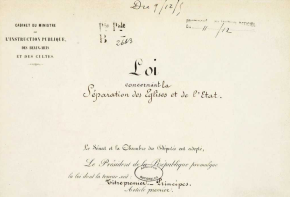 CABINET DU MINISTRE
DE
L'INSTRUCTION PUBLIQUE,
DES BEAUX-ARTS
ET DES CULTES
9/12/5
11/12
Loi
concernant la
Séparation des Eglises et de l'Etat.
Le Sénat et la Chambre des Députés ont adopté,
Le Président de la République promulgue
la loi dont la teneur suit :
Titre premier _ Principes.
Article premier.